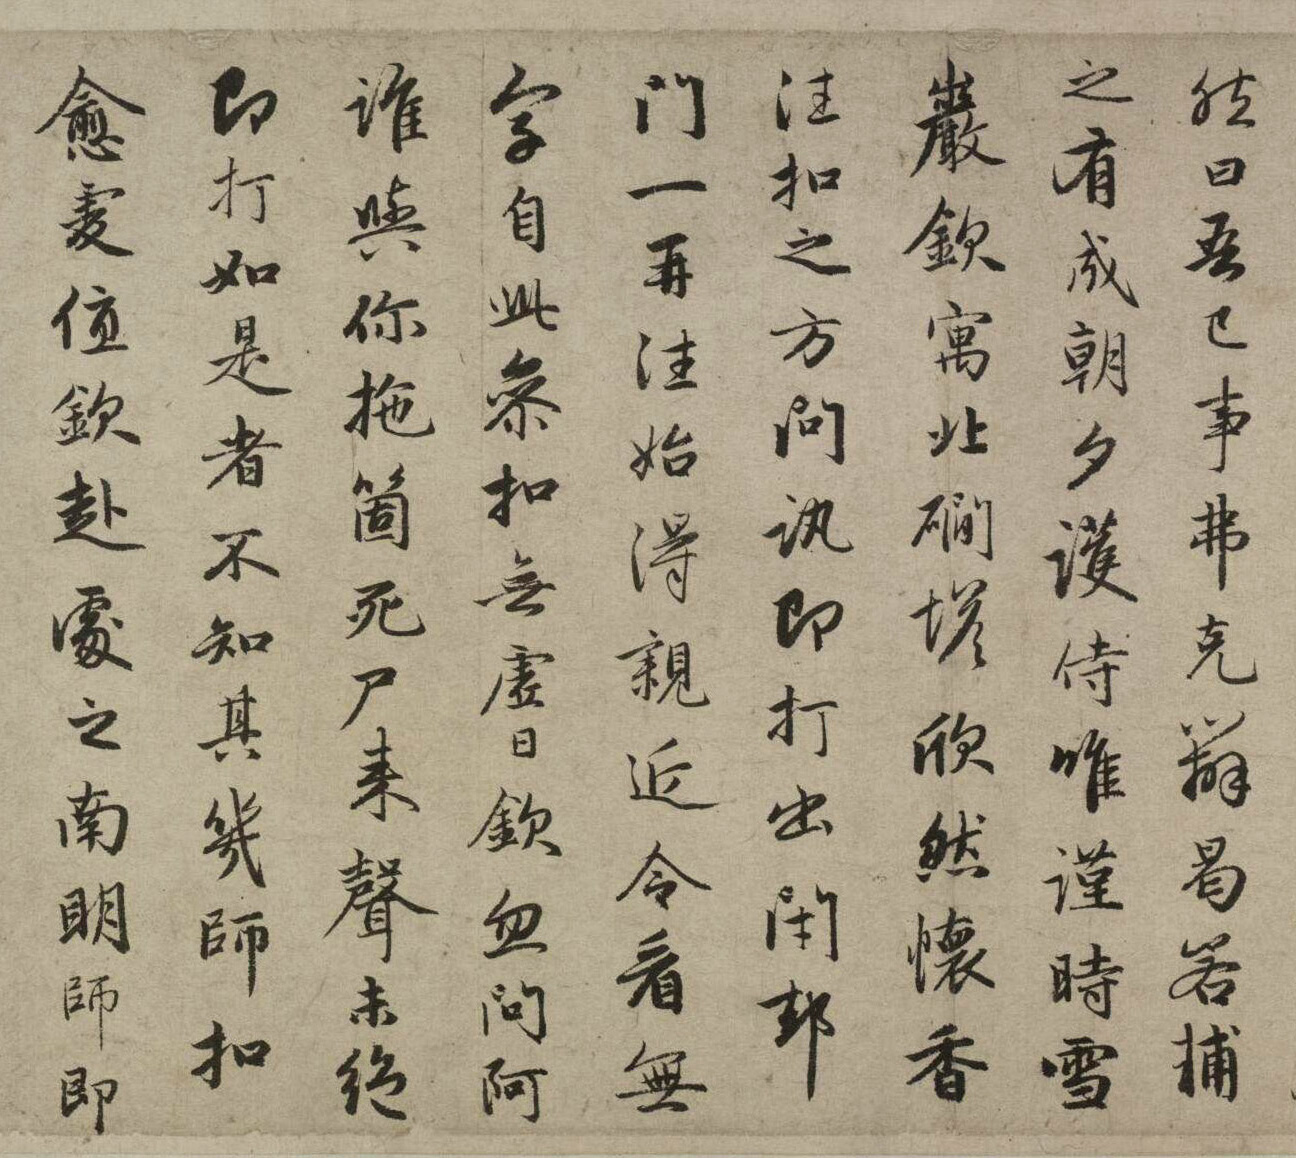 然曰吾已事弗克辯曷若捕
之有成朝夕護侍唯謹時雪
巖欽寓北磵塔欣然懷香
往扣之方問訊即打出閉却
門一再往始得親近令看無
字自此參扣無虛日欽忽問阿
誰與你拖箇死尸来聲未絶
即打如是者不知其幾師扣
愈虔值欽赴處之南明師即